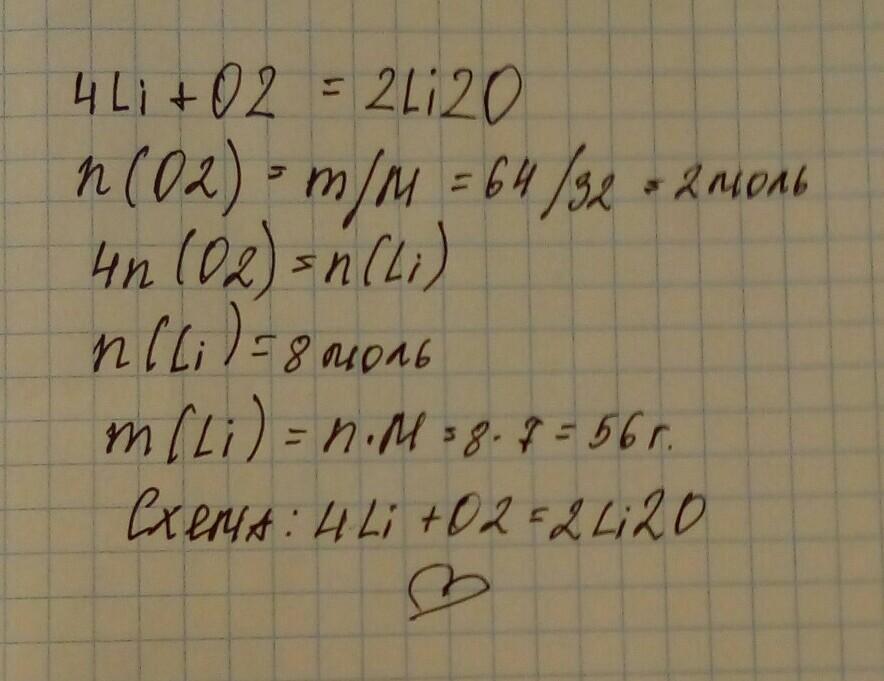 4Li + O2 = 2Li2O
n(O2) = m/M = 64/32 = 2 моль
4n(O2) = n(Li)
n(Li) = 8 моль
m(Li) = n·M = 8·7 = 56 г.
Схема: 4Li + O2 = 2Li2O